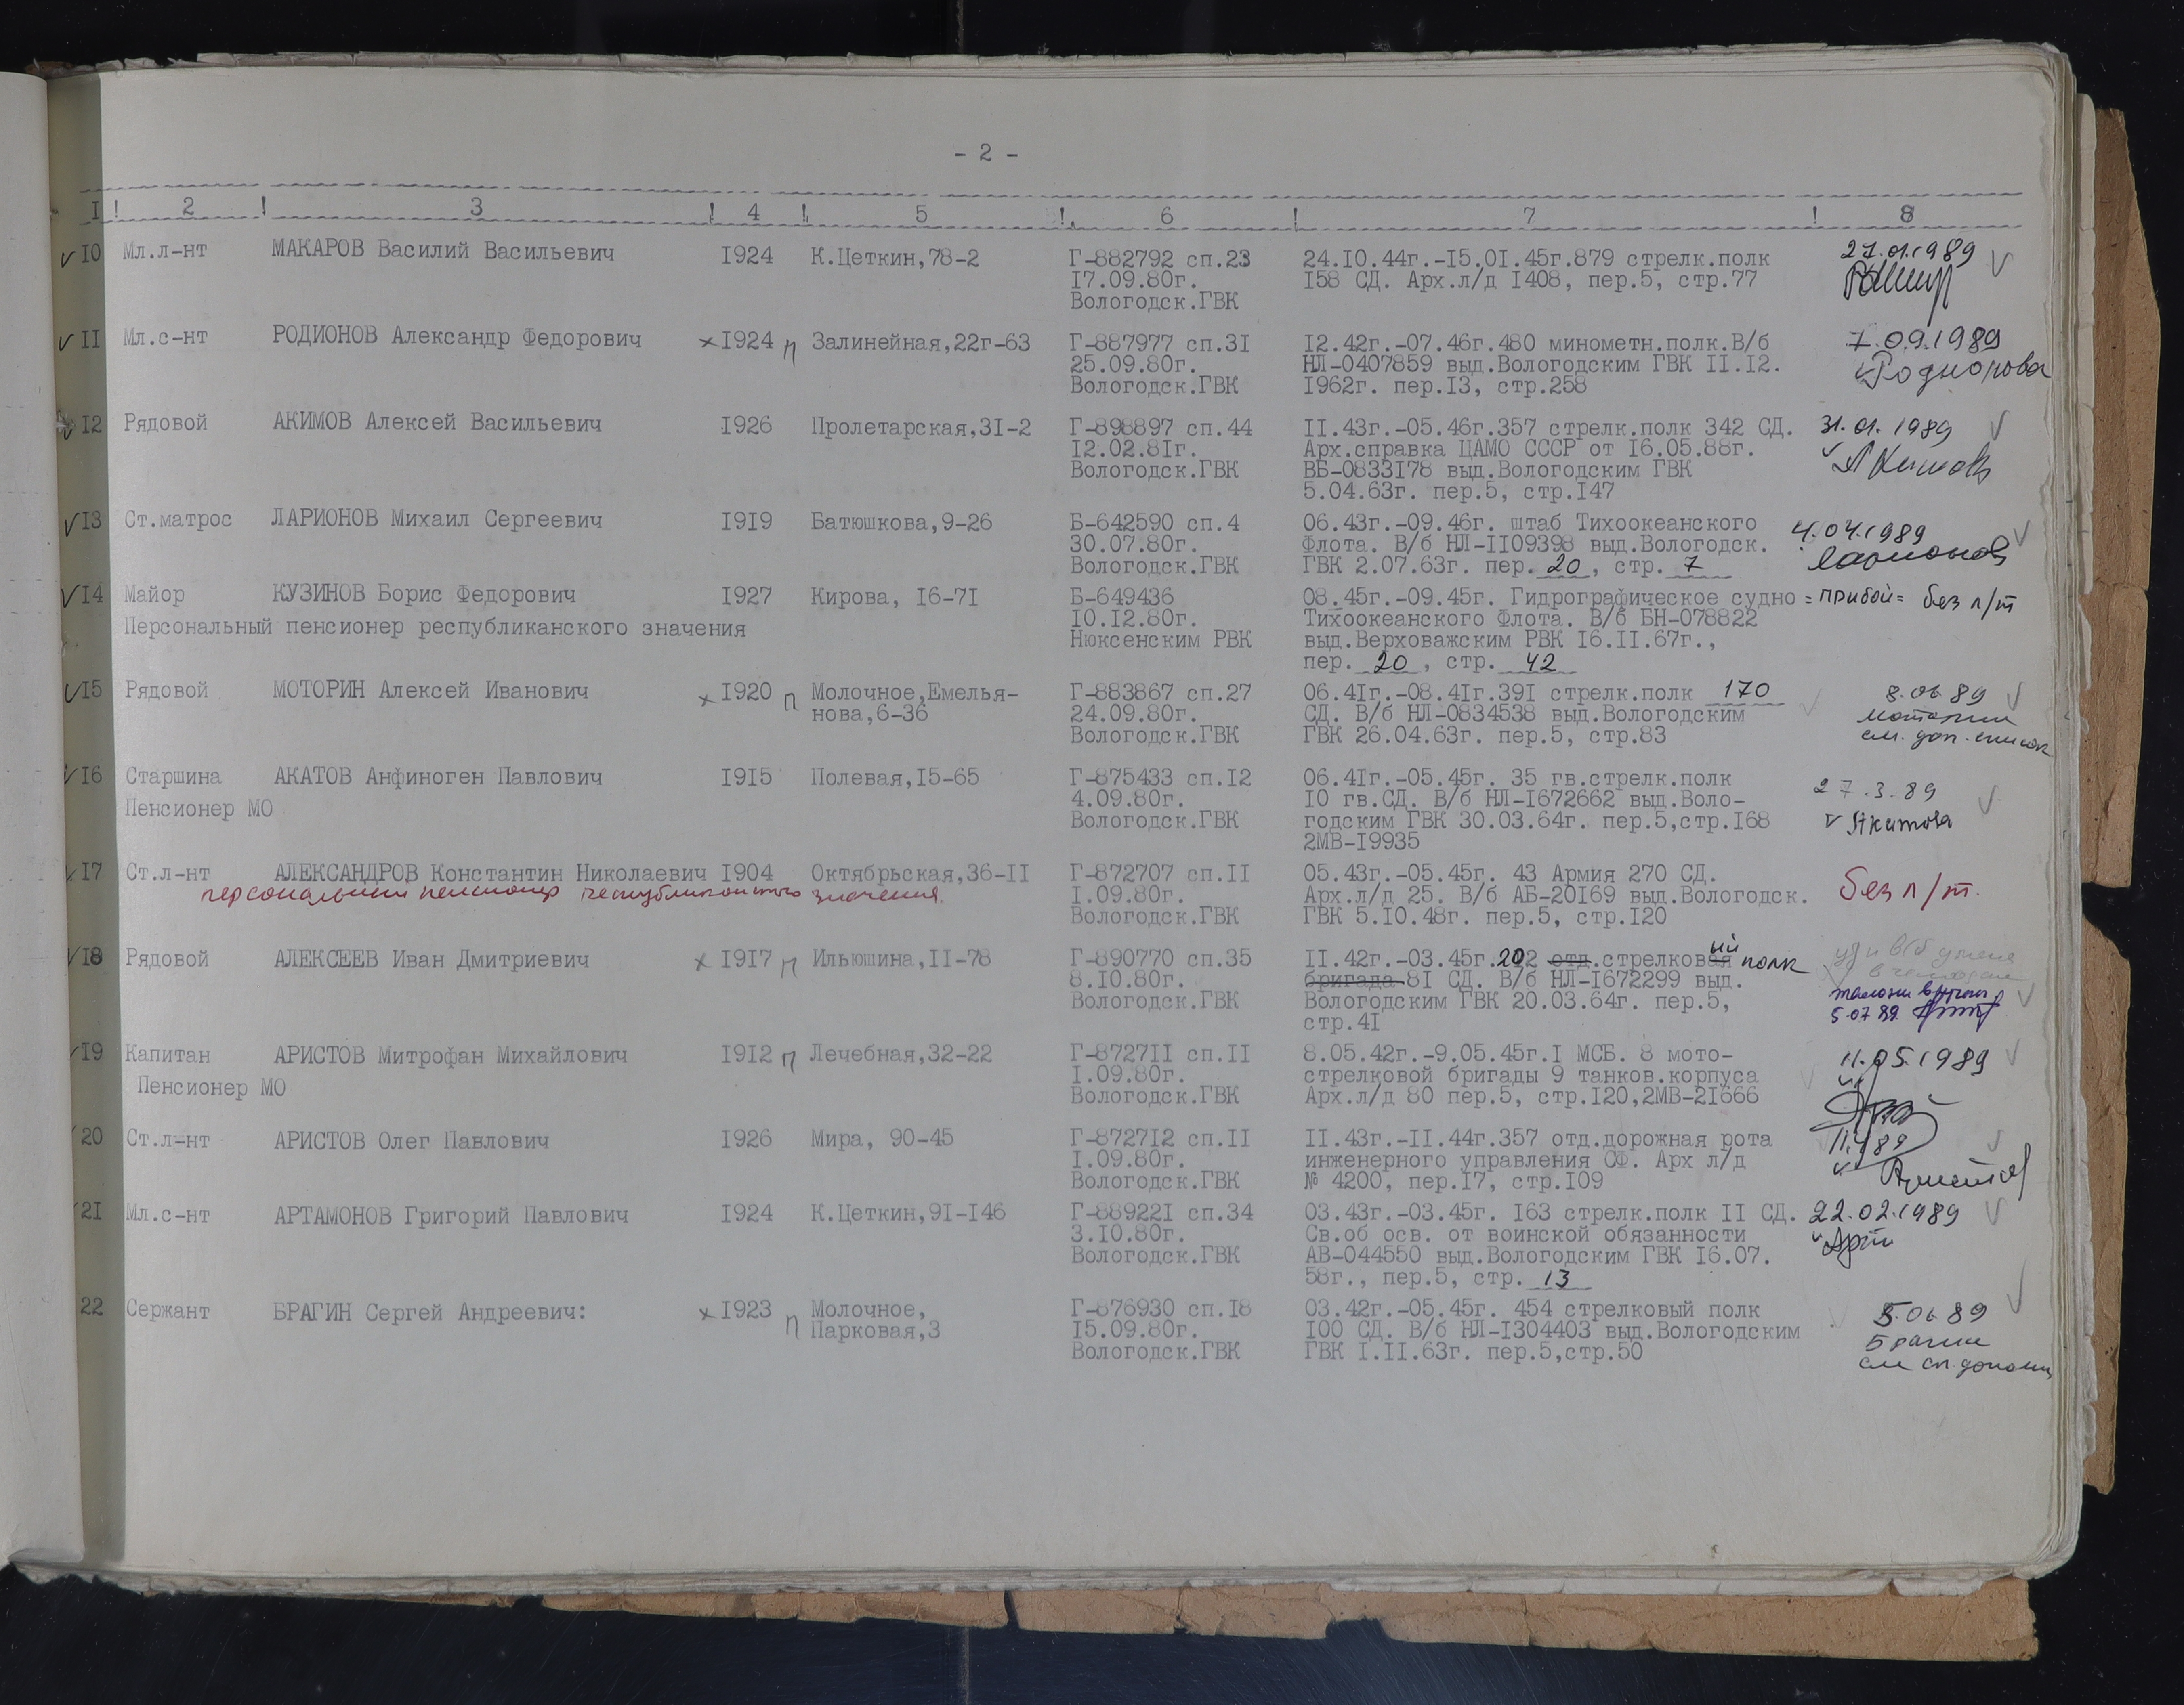 - 2 -
1 ! 2 ! 3 ! 4 ! 5 ! 6 ! 7 ! 8
10 Мл.л-нт МАКАРОВ Василий Васильевич 1924 К.Цеткин,78-2 Г-882792 сп.23 24.10.44г.-15.01.45г.879 стрелк.полк 27.01.1989
17.09.80г. 158 СД. Арх.л/д 1408, пер.5, стр.77
Вологодск.ГВК
11 Мл.с-нт РОДИОНОВ Александр Федорович х 1924 п Залинейная,22г-63 Г-887977 сп.31 12.42г.-07.46г.480 минометн.полк.В/б 7.09.1989
25.09.80г. НЛ-0407859 выд.Вологодским ГВК 11.12. Родионова
Вологодск.ГВК 1962г. пер.13, стр.258
12 Рядовой АКИМОВ Алексей Васильевич 1926 Пролетарская,31-2 Г-898897 сп.44 11.43г.-05.46г.357 стрелк.полк 342 СД. 31.01.1989
12.02.81г. Арх.справка ЦАМО СССР от 16.05.88г. Акимов
Вологодск.ГВК ВБ-0833178 выд.Вологодским ГВК
5.04.63г. пер.5, стр.147
13 Ст.матрос ЛАРИОНОВ Михаил Сергеевич 1919 Батюшкова,9-26 Б-642590 сп.4 06.43г.-09.46г. штаб Тихоокеанского 4.04.1989
30.07.80г. Флота. В/б НЛ-1109398 выд.Вологодск. Ларионов
Вологодск.ГВК ГВК 2.07.63г. пер. 20 , стр. 7
14 Майор КУЗИНОВ Борис Федорович 1927 Кирова, 16-71 Б-649436 08.45г.-09.45г. Гидрографическое судно = прибой = без л/т
Персональный пенсионер республиканского значения 10.12.80г. Тихоокеанского Флота. В/б БН-078822
Нюксенским РВК выд.Верховажским РВК 16.11.67г.,
пер. 20 , стр. 42
15 Рядовой МОТОРИН Алексей Иванович х 1920 п Молочное,Емелья- Г-883867 сп.27 06.41г.-08.41г.391 стрелк.полк 170 8.06 89
нова,6-36 24.09.80г. СД. В/б НЛ-0834538 выд.Вологодским
Вологодск.ГВК ГВК 26.04.63г. пер.5, стр.83 см. доп. список
16 Старшина АКАТОВ Анфиноген Павлович 1915 Полевая,15-65 Г-875433 сп.12 06.41г.-05.45г. 35 гв.стрелк.полк 27.3.89
Пенсионер МО 4.09.80г. 10 гв.СД. В/б НЛ-1672662 выд.Воло-
Вологодск.ГВК годским ГВК 30.03.64г. пер.5,стр.168
2МВ-19935
17 Ст.л-нт АЛЕКСАНДРОВ Константин Николаевич 1904 Октябрьская,36-11 Г-872707 сп.11 05.43г.-05.45г. 43 Армия 270 СД. без л/т.
персональный пенсионер республиканского значения. 1.09.80г. Арх.л/д 25. В/б АБ-20169 выд.Вологодск.
Вологодск.ГВК ГВК 5.10.48г. пер.5, стр.120
18 Рядовой АЛЕКСЕЕВ Иван Дмитриевич х 1917 п Ильюшина,11-78 Г-890770 сп.35 11.42г.-03.45г.202 отд.стрелковая ий полк
8.10.80г. бригада 81 СД. В/б НЛ-1672299 выд.
Вологодск.ГВК Вологодским ГВК 20.03.64г. пер.5,
стр.41 5.07 89
19 Капитан АРИСТОВ Митрофан Михайлович 1912 п Лечебная,32-22 Г-872711 сп.11 8.05.42г.-9.05.45г.1 МСБ. 8 мото- 11.05.1989
Пенсионер МО 1.09.80г. стрелковой бригады 9 танков.корпуса
Вологодск.ГВК Арх.л/д 80 пер.5, стр.120,2МВ-21666
20 Ст.л-нт АРИСТОВ Олег Павлович 1926 Мира, 90-45 Г-872712 сп.11 11.43г.-11.44г.357 отд.дорожная рота
1.09.80г. инженерного управления СФ. Арх л/д
Вологодск.ГВК № 4200, пер.17, стр.109
21 Мл.с-нт АРТАМОНОВ Григорий Павлович 1924 К.Цеткин,91-146 Г-889221 сп.34 03.43г.-03.45г. 163 стрелк.полк 11 СД. 22.02.1989
3.10.80г. Св.об осв. от воинской обязанности
Вологодск.ГВК АВ-044550 выд.Вологодским ГВК 16.07.
58г., пер.5, стр. 13
22 Сержант БРАГИН Сергей Андреевич: х 1923 п Молочное, Г-876930 сп.18 03.42г.-05.45г. 454 стрелковый полк 5.06 89
Парковая,3 15.09.80г. 100 СД. В/б НЛ-1304403 выд.Вологодским Брагин
Вологодск.ГВК ГВК 1.11.63г. пер.5,стр.50